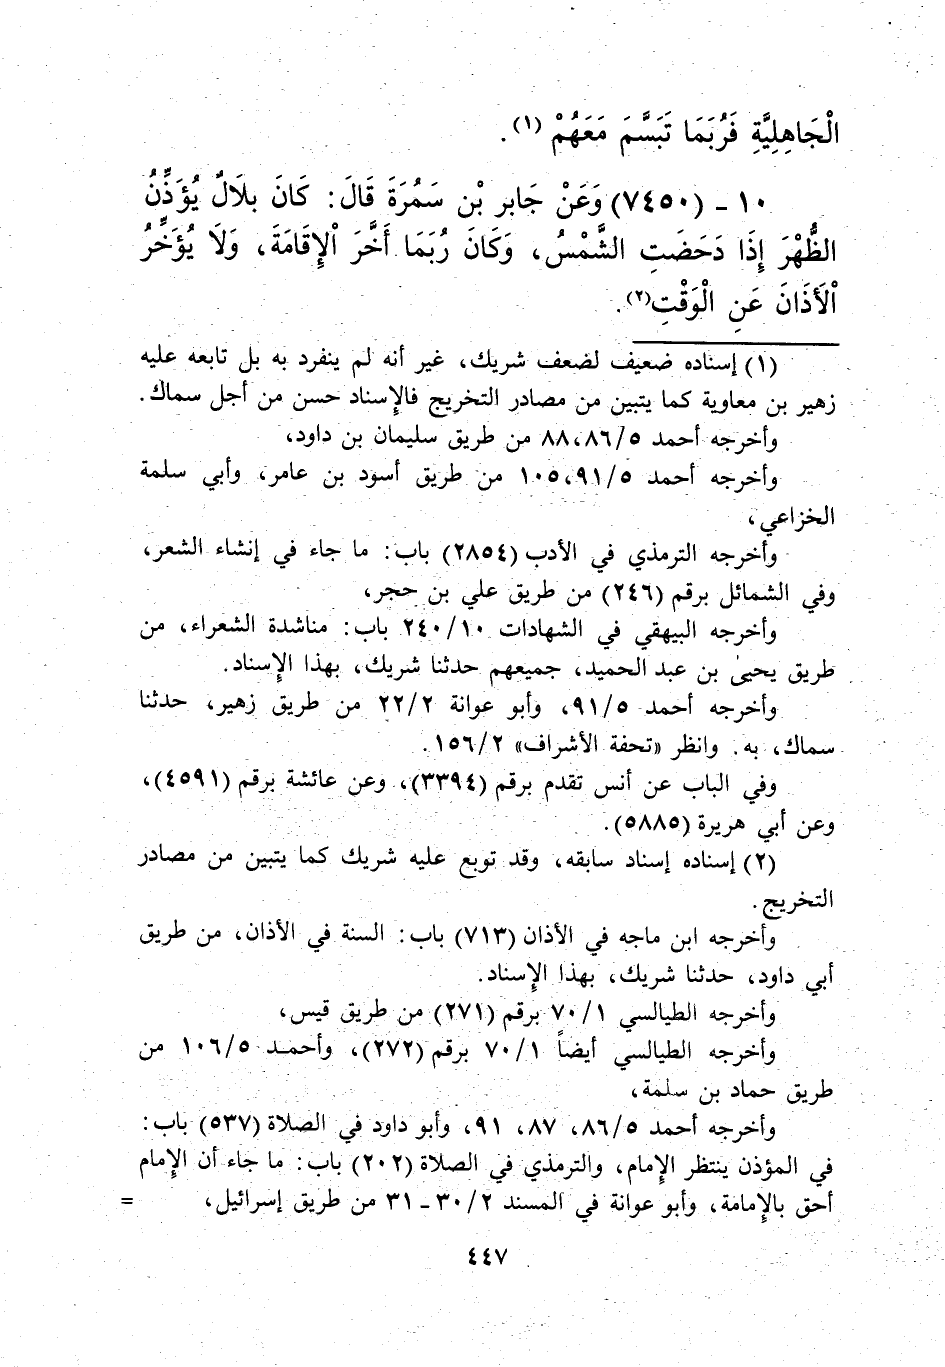 الْجَاهِلِيَّةِ فَرُبَمَا تَبَسَّمَ مَعَهُمْ (١).
١٠ ـ (٧٤٥٠) وَعَنْ جَابِرِ بْنِ سَمُرَةَ قَالَ: كَانَ بِلَالٌ يُؤَذِّنُ
الظُّهْرَ إِذَا دَحَضَتِ الشَّمْسُ، وَكَانَ رُبَمَا أَخَّرَ اْلإِقَامَةَ، وَلَا يُؤَخِّرُ
اْلأَذَانَ عَنِ الْوَقْتِ(٢).
(١) إسناده ضعيف لضعف شريك، غير أنه لم ينفرد به بل تابعه عليه
زهير بن معاوية كما يتبين من مصادر التخريج فالإسناد حسن من أجل سماك.
وأخرجه أحمد ٨٦/٥، ٨٨ من طريق سليمان بن داود،
وأخرجه أحمد ٩١/٥، ١٠٥ من طريق أسود بن عامر، وأبي سلمة
الخزاعي،
وأخرجه الترمذي في الأدب (٢٨٥٤) باب: ما جاء في إنشاء الشعر،
وفي الشمائل برقم (٢٤٦) من طريق علي بن حجر،
وأخرجه البيهقي في الشهادات ٢٤٠/١٠ باب: مناشدة الشعراء، من
طريق يحيىٰ بن عبد الحميد، جميعهم حدثنا شريك، بهذا الإسناد.
وأخرجه أحمد ٩١/٥، وأبو عوانة ٢٢/٢ من طريق زهير، حدثنا
سماك، به. وانظر «تحفة الأشراف» ١٥٦/٢.
وفي الباب عن أنس تقدم برقم (٣٣٩٤)، وعن عائشة برقم (٤٥٩١)،
وعن أبي هريرة (٥٨٨٥).
(٢) إسناده إسناد سابقه، وقد توبع عليه شريك كما يتبين من مصادر
التخريج.
وأخرجه ابن ماجه في الأذان (٧١٣) باب: السنة في الأذان، من طريق
أبي داود، حدثنا شريك، بهذا الإسناد.
وأخرجه الطيالسي ٧٠/١ برقم (٢٧١) من طريق قيس،
وأخرجه الطيالسي أيضاً ٧٠/١ برقم (٢٧٢)، وأحمد ١٠٦/٥ من
طريق حماد بن سلمة،
وأخرجه أحمد ٨٦/٥، ٨٧، ٩١، وأبو داود في الصلاة (٥٣٧) باب:
في المؤذن ينتظر الإمام، والترمذي في الصلاة (٢٠٢) باب: ما جاء أن الإمام
أحق بالإمامة، وأبو عوانة في المسند ٣٠/٢ ـ ٣١ من طريق إسرائيل، =
٤٤٧